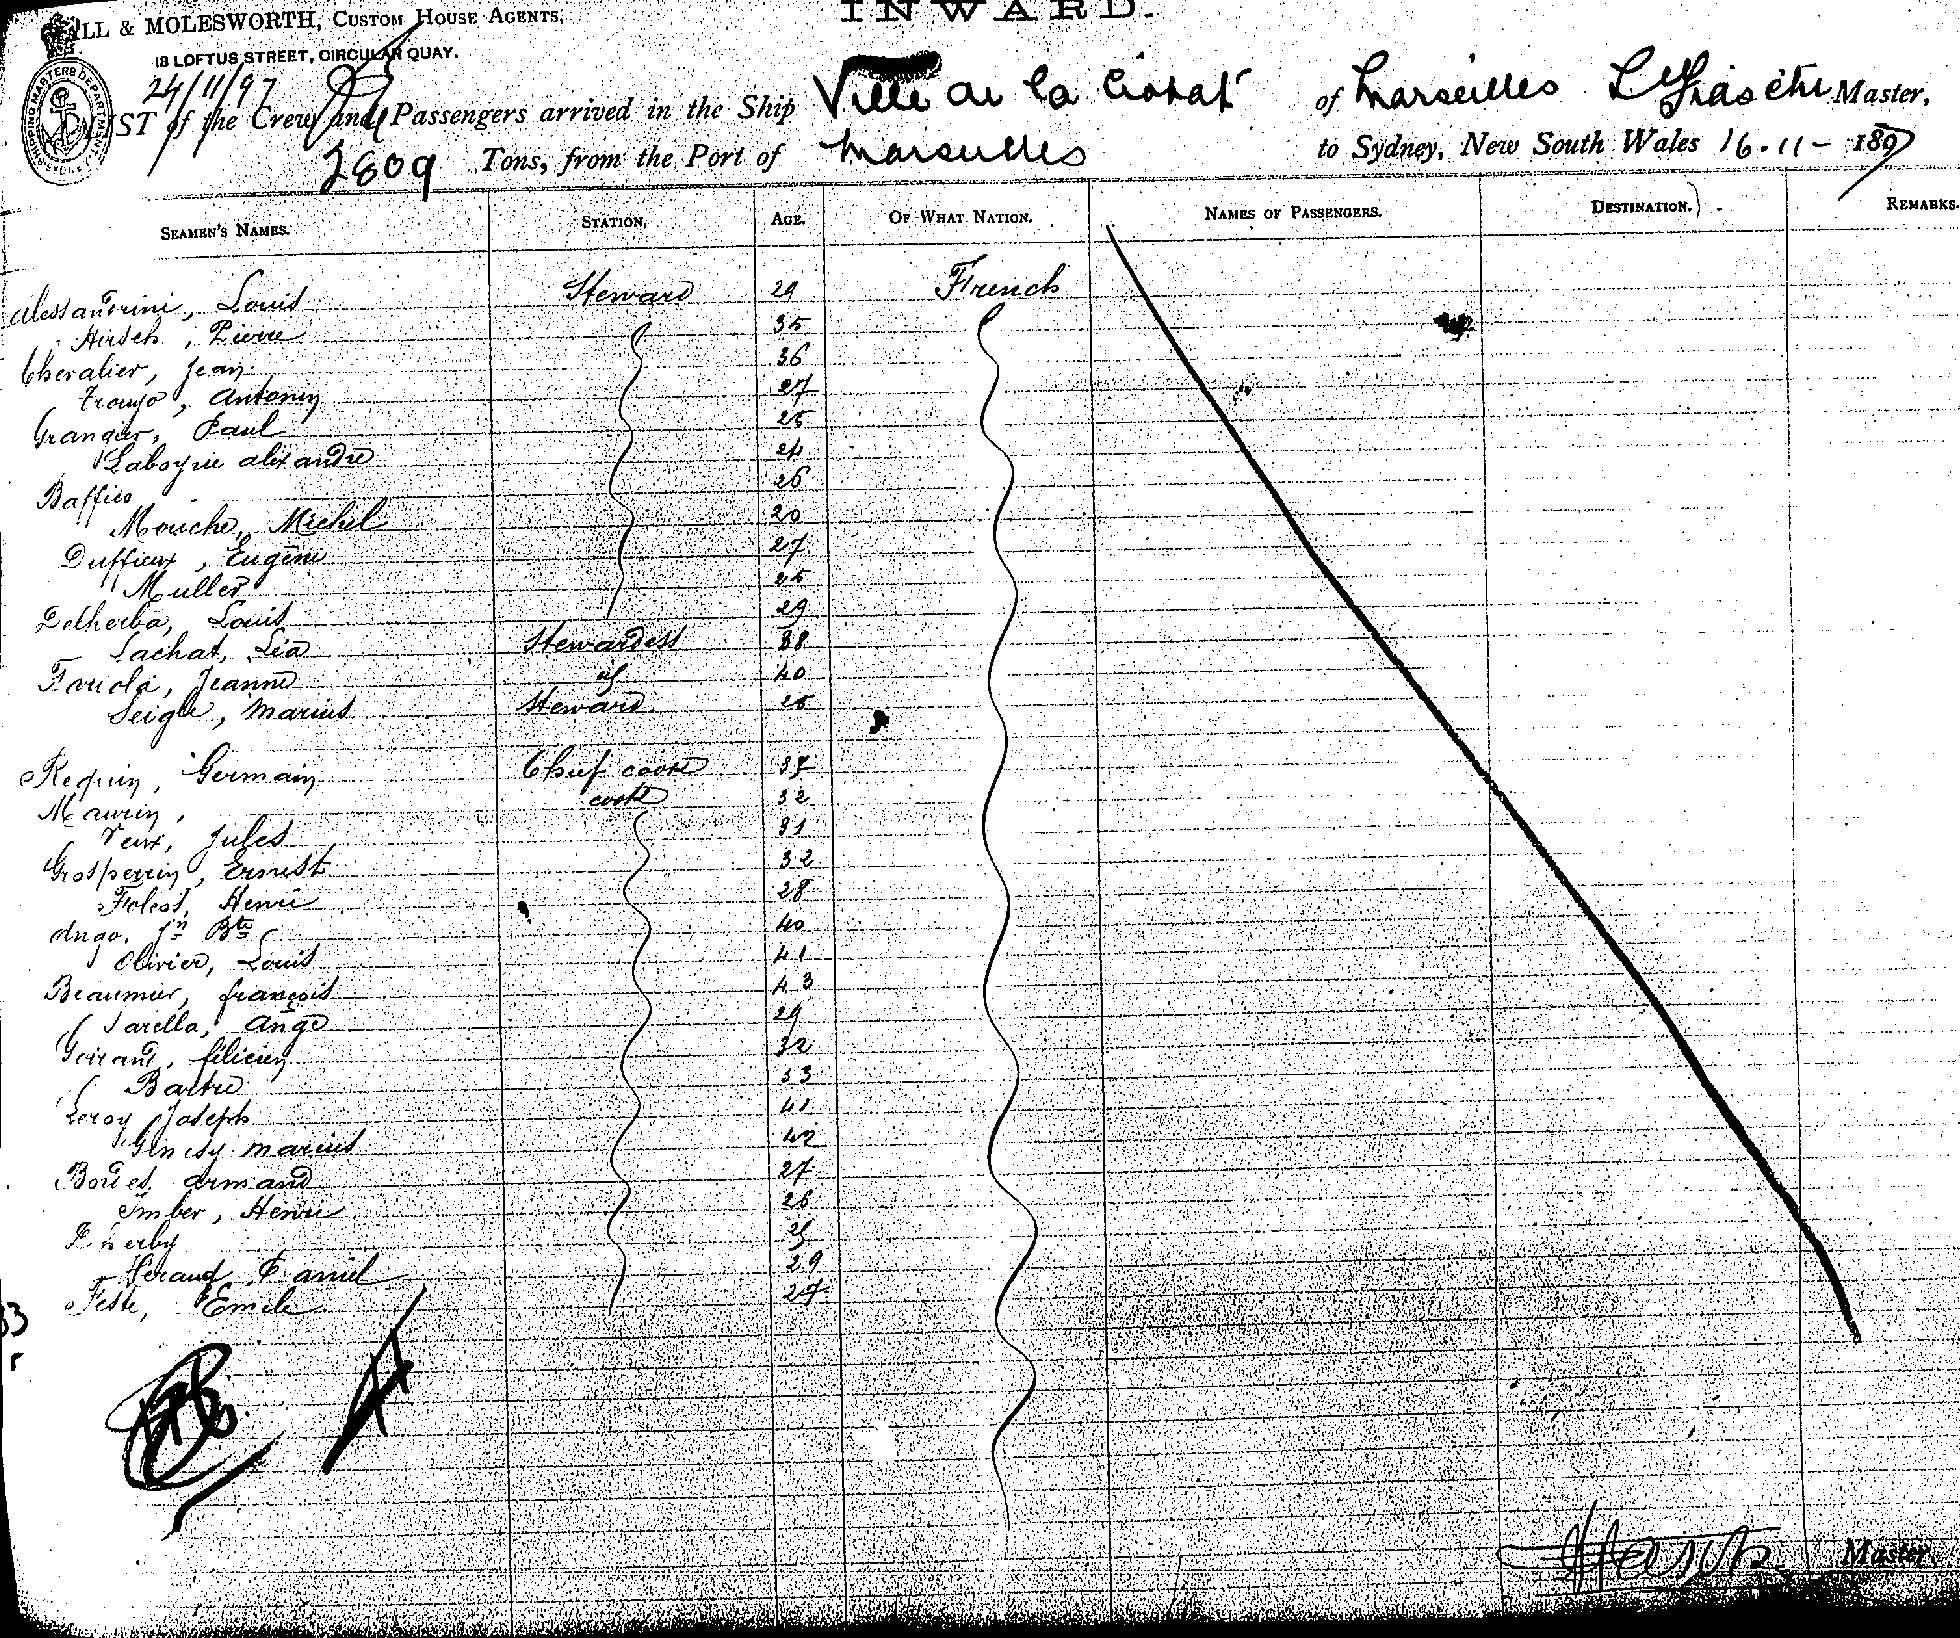 INWARD.
ILL & MOLESWORTH, CUSTOM HOUSE AGENTS,
18 LOFTUS STREET, CIRCULAR QUAY.
SHIPPING MASTERS DEPARTMENT
24/11/97
LIST of the Crew and Passengers arrived in the Ship Ville de la Ciotat of Marseilles Master,
2809 Tons, from the Port of Marseilles to Sydney, New South Wales 16.11-1897
SEAMEN'S NAMES. STATION. AGE. OF WHAT NATION. NAMES OF PASSENGERS. DESTINATION. REMARKS.
Alessandrini, Louis Steward 29 French
Hirsch, Pierre 35
Chevalier, Jean 36
Antonin 27
Granger, Paul 25
Laboyrie alexandre 24
Baffies 26
Mouche, Michel 20
Duffieux, Eugène 27
Muller 25
Delherba, Louis 29
Lachat, Lia Stewardess 38
Jeanne 40
Seigle, Marius Steward 25
Requin, Germain Chief cook 37
Maurin, cook 32
Veux, Jules 31
Grosperrin, Ernest 32
Folest, Henri 28
Ango, Jn Bte 40
Olivier, Louis 41
Beaumier, françois 43
Sarella, Ange 29
Goirand, félicien 32
Bartre 33
Leroy Joseph 41
Genesy marius 42
Armand 27
Imber, Henri 26
29
Daniel 29
Feste, Emile 27
33
Master